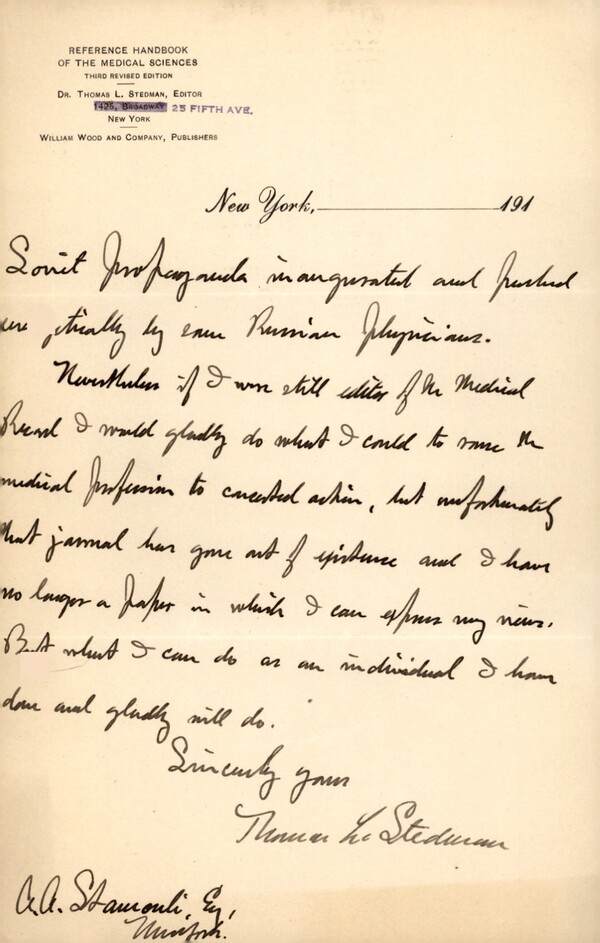 REFERENCE HANDBOOK
OF THE MEDICAL SCIENCES
THIRD REVISED EDITION
DR. THOMAS L. STEDMAN, EDITOR
1425, BROADWAY 25 FIFTH AVE.
NEW YORK
WILLIAM WOOD AND COMPANY, PUBLISHERS
New York, 191
Soviet propaganda inaugurated and pushed
by some Russian physicians.
Nevertheless if I were still editor of the Medical
Record I would gladly do what I could to rouse the
medical profession to concerted action, but unfortunately
that journal has gone out of existence and I have
no longer a paper in which I can express my views.
But what I can do as an individual I have
done and gladly will do.
Sincerely yours
Thomas L. Stedman
A.A. Stamouli, Esq,
New York.